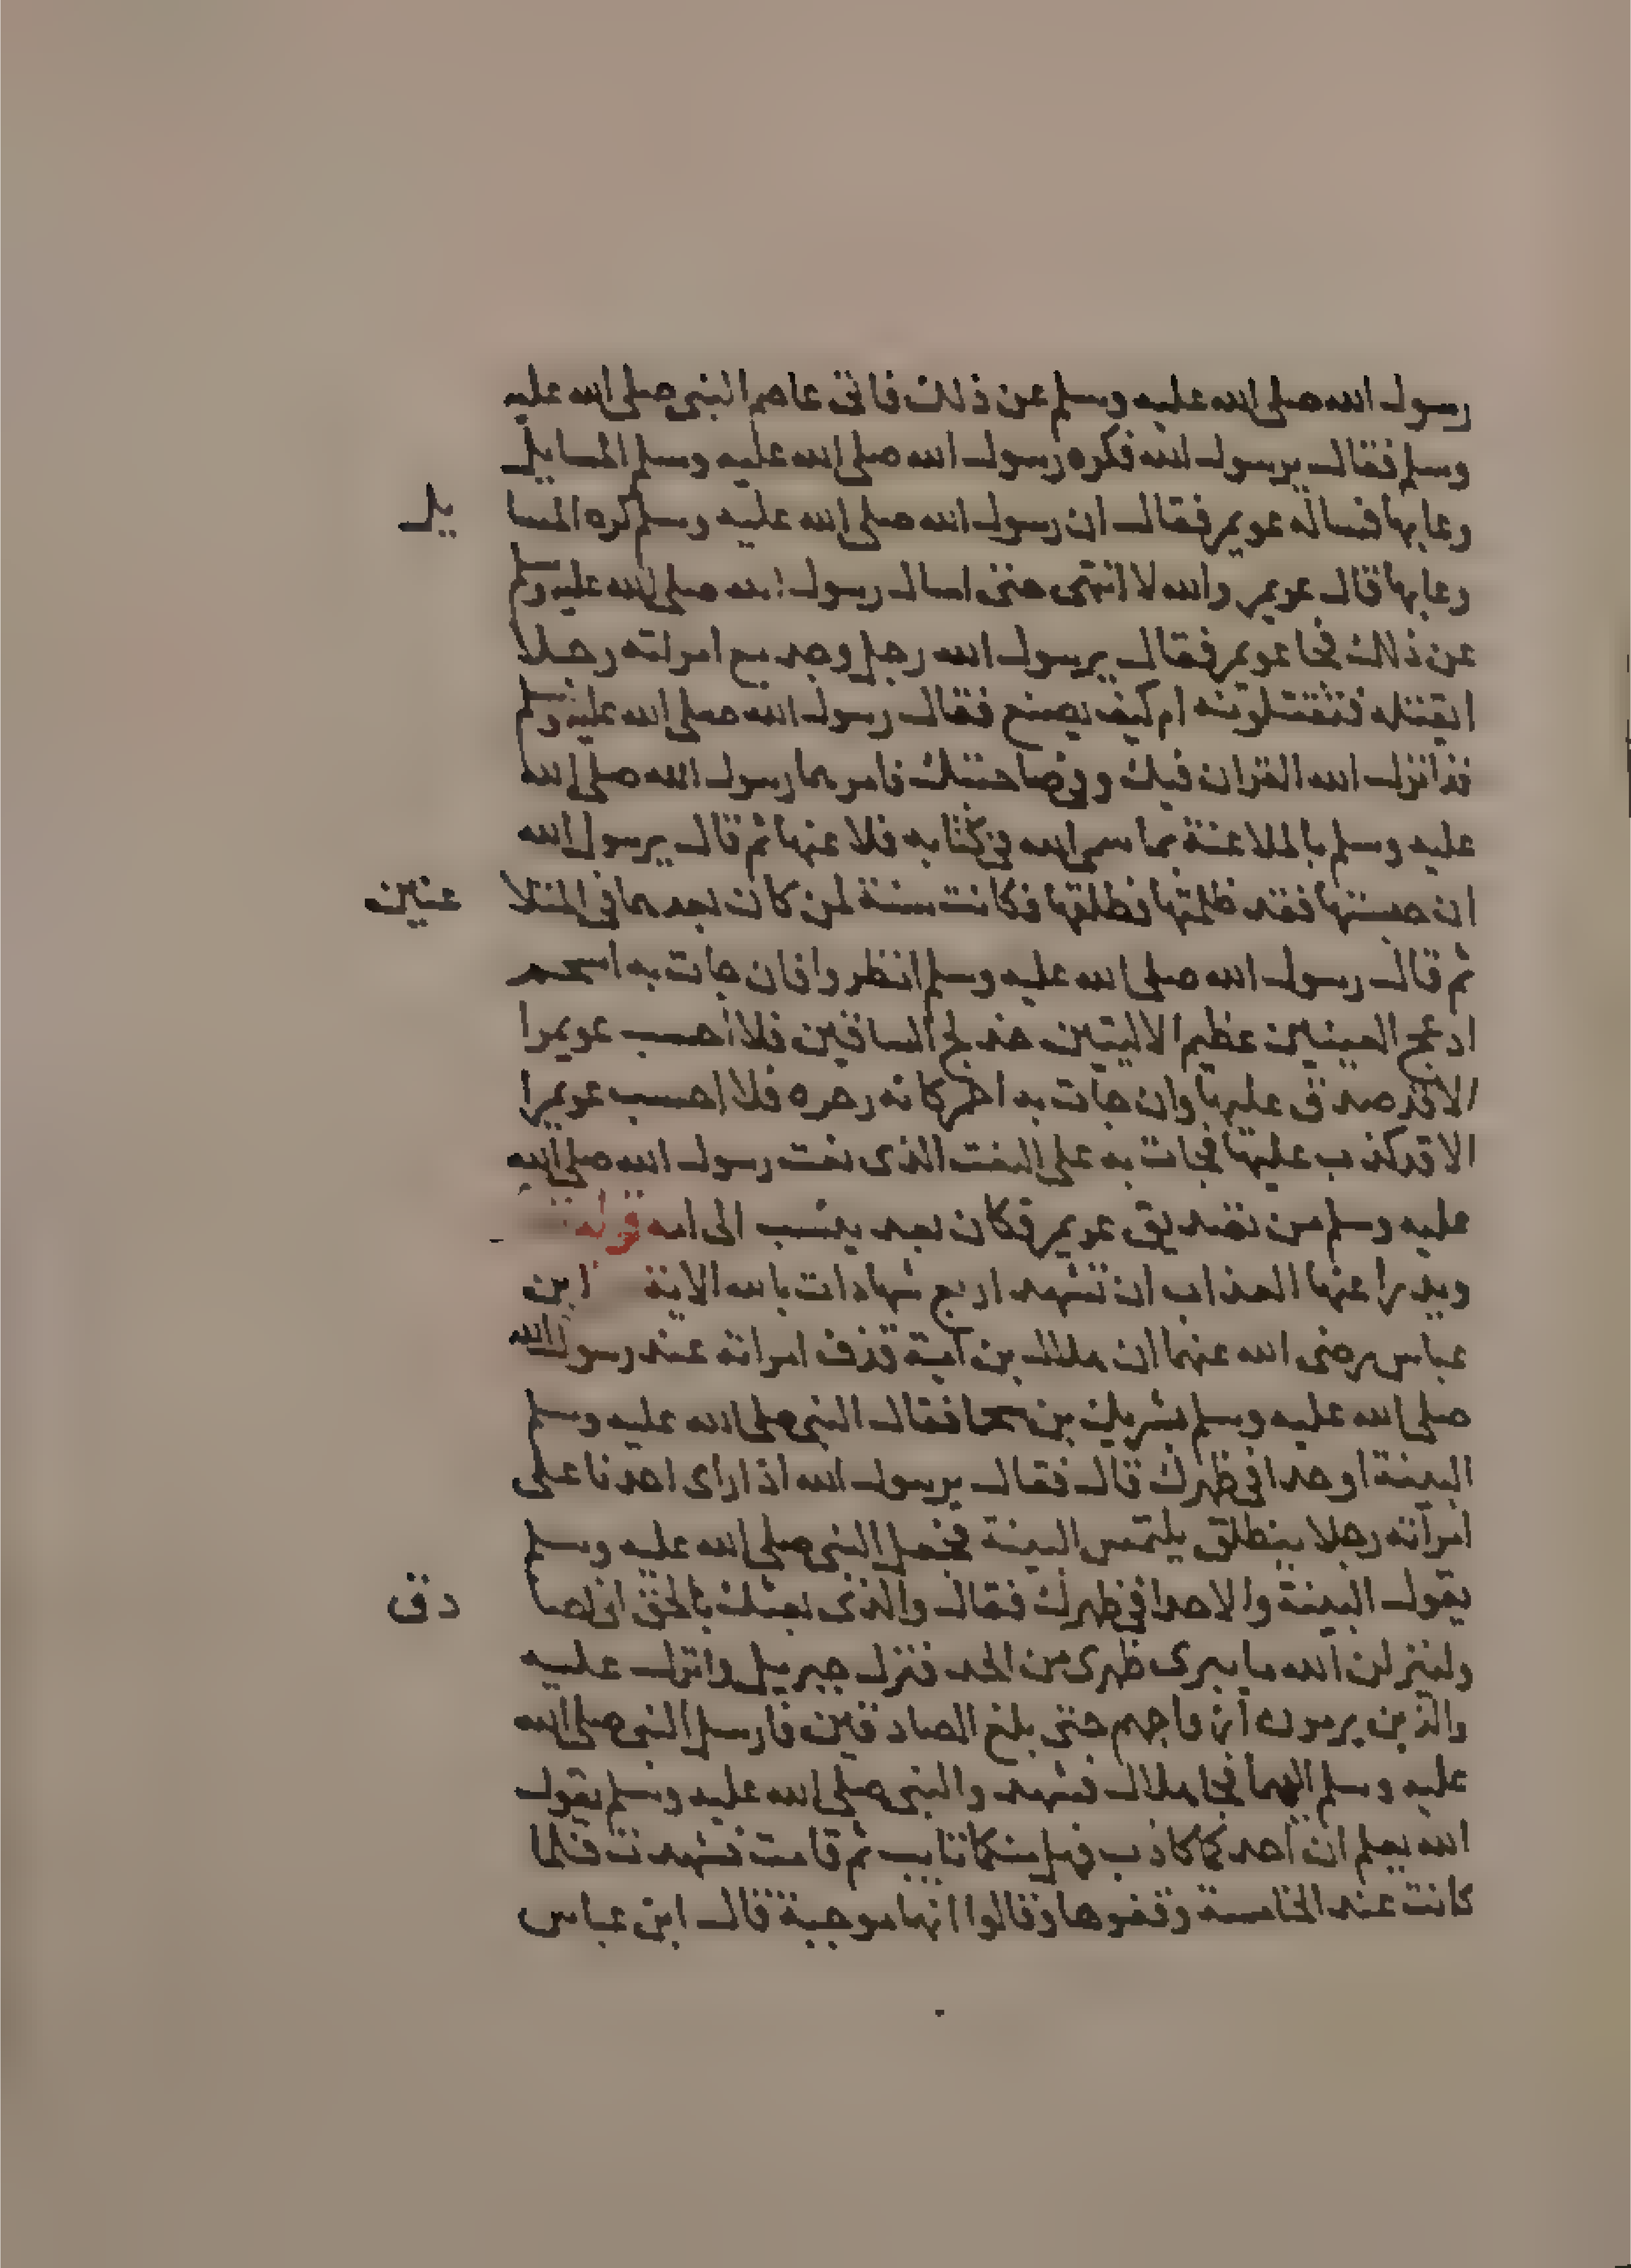 رسول الله صلى الله عليه وسلم عن ذلك فاتى عاصم النبي صلى الله عليه
وسلم فقال يرسول الله فكره رسول الله صلى الله عليه وسلم المسايل
وعابها فساله عويمر فقال ان رسول الله صلى الله عليه وسلم كره المسا يل
وعابها قال عويمر والله لا انتهى حتى اسال رسول الله صلى الله عليه وسلم
عن ذلك فجا عويمر فقال يرسول الله رجل وجد مع امراته رجلا
ايقتله فتقتلونه ام كيف يصنع فقال رسول الله صلى الله عليه وسلم
قد انزل الله القران فيك وفي صاحبتك فامرهما رسول الله صلى الله
عليه وسلم بالملاعنة بما سمى الله في كتابه فلاعنها ثم قال يرسول الله
ان حبستها فقد ظلمتها فطلقها فكانت سنة لمن كان بعدهما في المتلا عنين
ثم قال رسول الله صلى الله عليه وسلم انظروا فان جات به اسحم
ادعج العينين عظيم الاليتين خدلج الساقين فلا احسب عويمرا
الا قد صدق عليها وان جات به احمر كانه وحره فلا احسب عويمرا
الا قد كذب عليها فجات به على النعت الذى نعت رسول الله صلى الله
عليه وسلم من تصديق عويمر فكان بعد ينسب الى امه قوله
ويدرا عنها العذاب ان تشهد اربع شهادات بالله الاية ابن
عباس رضى الله عنهما ان هلال بن امية قذف امراته عند رسول الله
صلى الله عليه وسلم بشريك بن سحما فقال النبي صلى الله عليه وسلم
البينة او حدا في ظهرك قال فقال يرسول الله اذا راى احدنا على
امراته رجلا ينطلق يلتمس البينة فجعل النبي صلى الله عليه وسلم
يقول البينة والا حدا في ظهرك فقال والذى بعثك بالحق انى لصا دق
ولينزلن الله ما يبرى ظهرى من الحد فنزل جبريل وانزل عليه
والذين يرمون ازواجهم حتى بلغ الصادقين فارسل النبي صلى الله
عليه وسلم اليهما فجا هلال فشهد والنبي صلى الله عليه وسلم يقول
الله يعلم ان احدكما كاذب فهل منكما تايب ثم قامت فشهدت فلما
كانت عند الخامسة وقفوها وقالوا انها موجبة قال ابن عباس